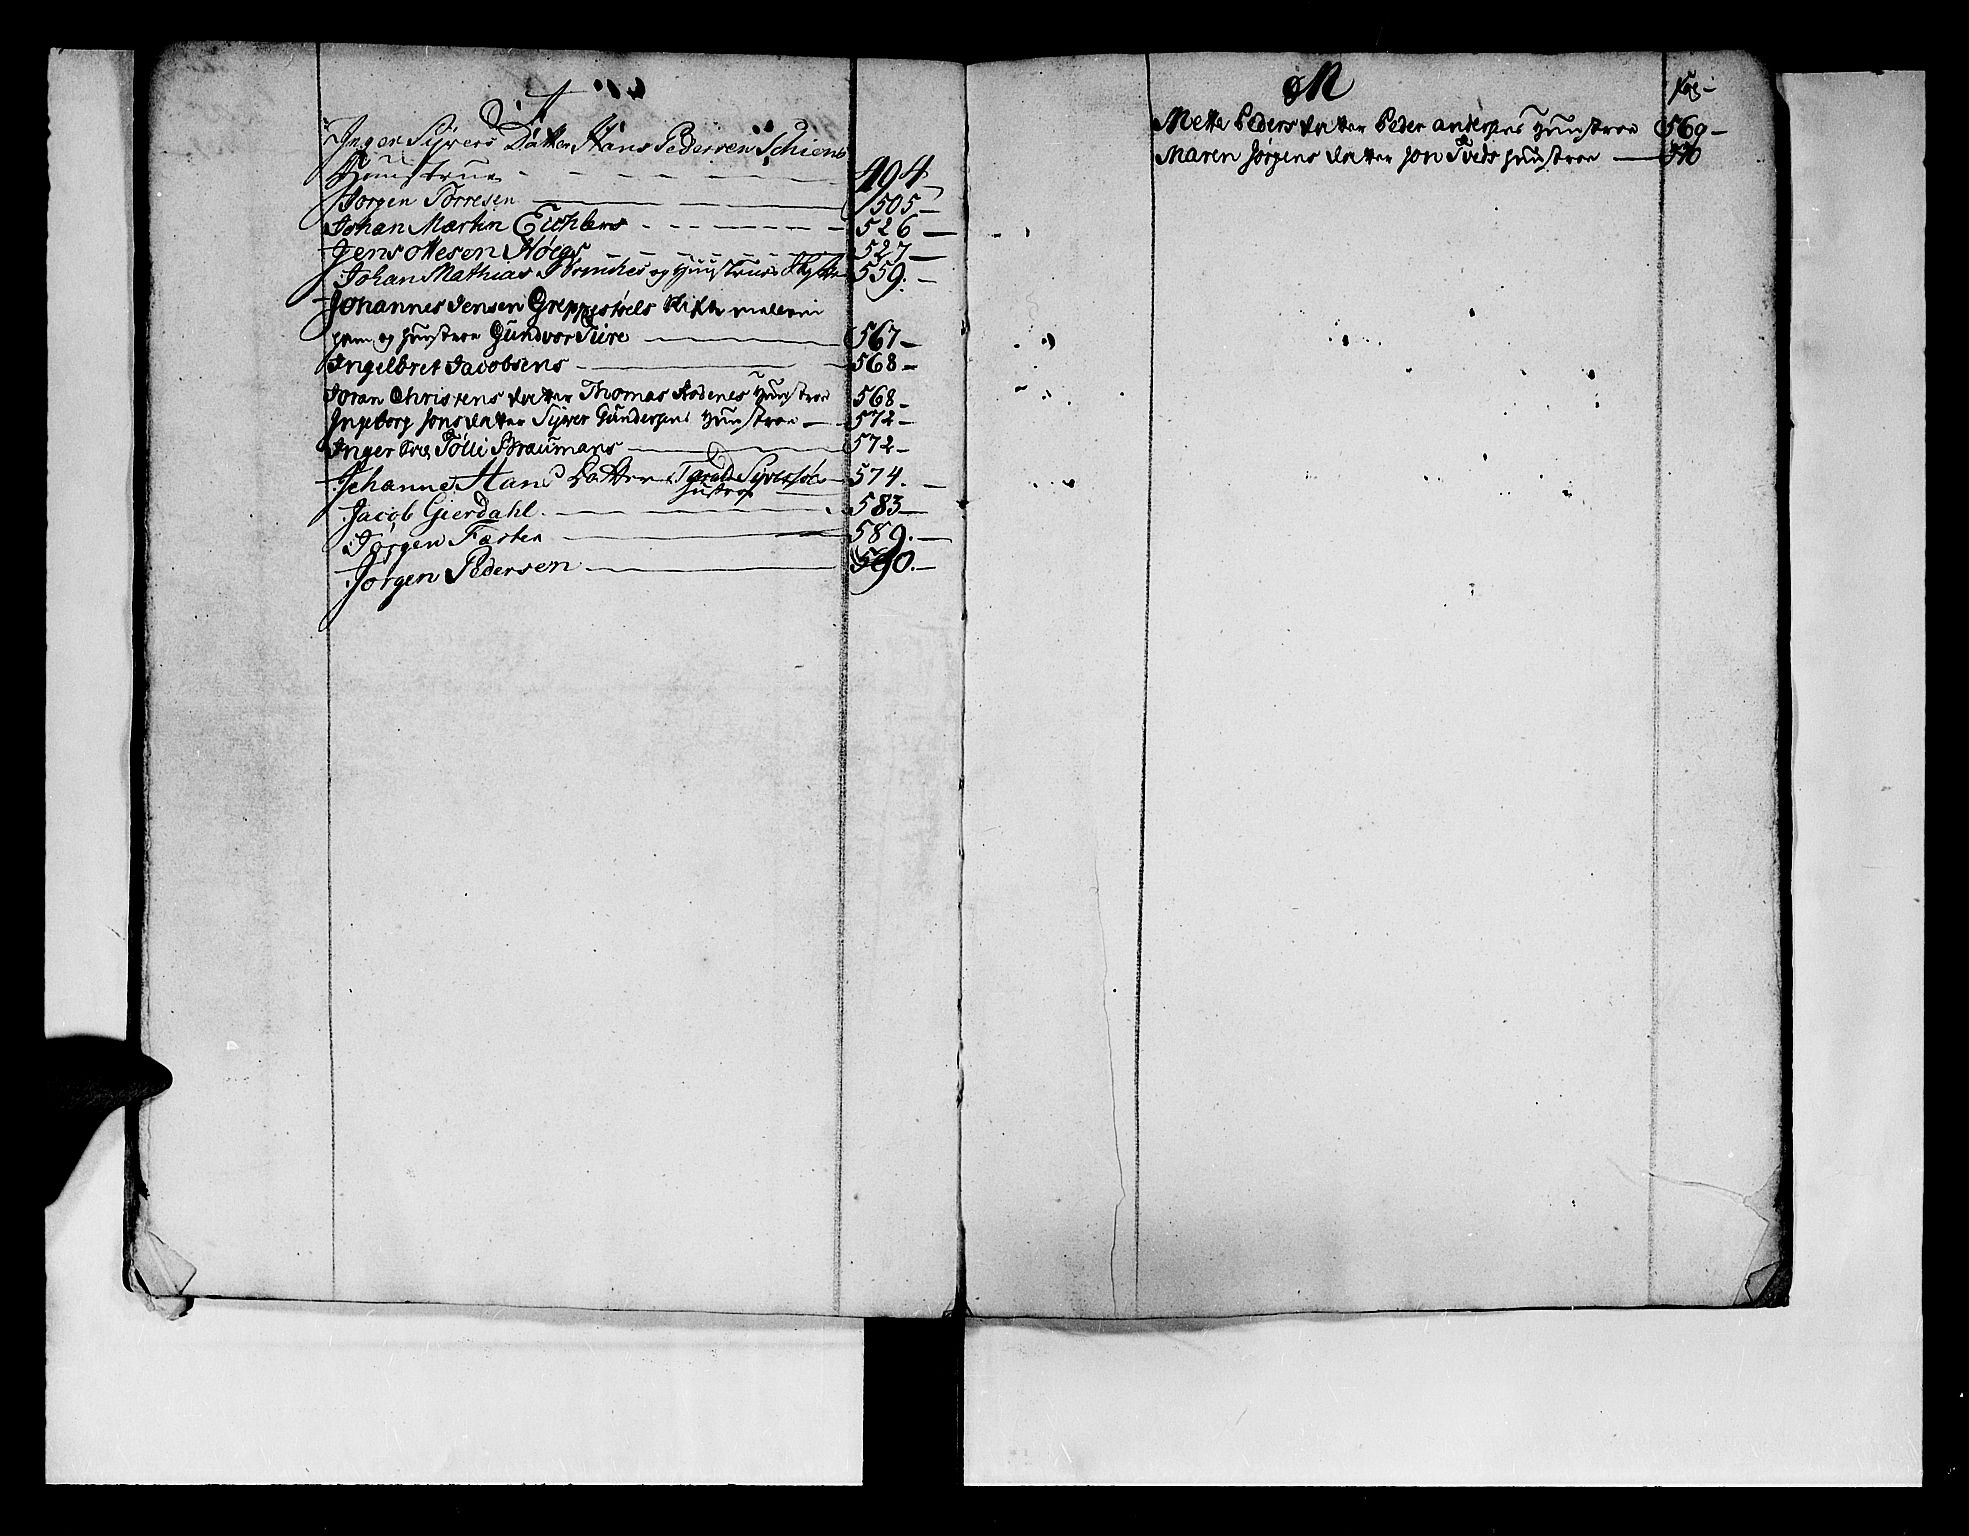 I
Inger Syvers Datter Hans Pedersen Schiens
Huustrue 494
Jørgen Torresen 505
Johan Martin Eichlers 526
Jens Ottesen Høegs 527
Johan Mathias og Huustrues 559.
Johannes Jensen Greppestøels
og hustroe Gundvor Ture 567
Ingelbret Jacobsens 568
Joran Christens datter Thomas Hustroe 568
Ingeborg Jons datter Syver Gundersens Hustroe 572
Inger Tolli Braumans 572
Johanne Hans Datter Tarald Syvers
Hustroe 574.
Jacob Gierdahl. 583
Jørgen Færter 589.
Jørgen Pedersen 590.
M
Fol
Mette Peders datter Peder Andersens Hustroe 569
Maren Jørgens datter Jon Tveds hustroe 570